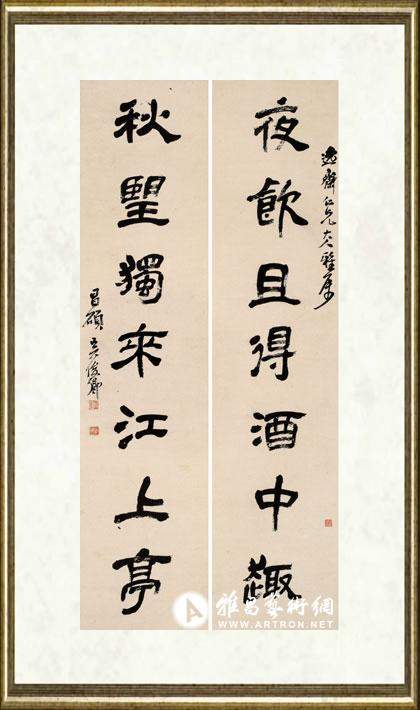 逸齋仁兄大人雅屬
夜飲且得酒中趣
秋望獨來江上亭
昌碩吳俊卿
雅昌藝術網
WWW.ARTRON.NET